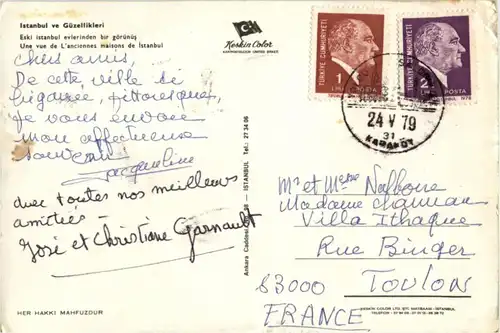 Istanbul ve Güzellikleri
Eski istanbul evlerinden bir görünüş
Une vue de L'anciennes maisons de İstanbul
Keskin Color
Chers amis,
De cette ville si
bigarrée, pittoresque,
je vous envoie
mon affectueux
souvenir
Jacqueline
avec toutes nos meilleures
amitiés -
José et Christiane Garnault
HER HAKKI MAHFUZDUR
Ankara Caddesi
İSTANBUL Tel.: 27 34 06
TÜRKİYE CUMHURİYETİ
1
LİRA POSTA
TÜRKİYE CUMHURİYETİ
2
POSTA
24 V 79
31
KARAKÖY
Mr et Mme Nalbone
Madame
Villa Ithaque
Rue Binger
83000 Toulon
FRANCE
KESKIN COLOR LTD. ŞTİ. MATBAASI - İSTANBUL